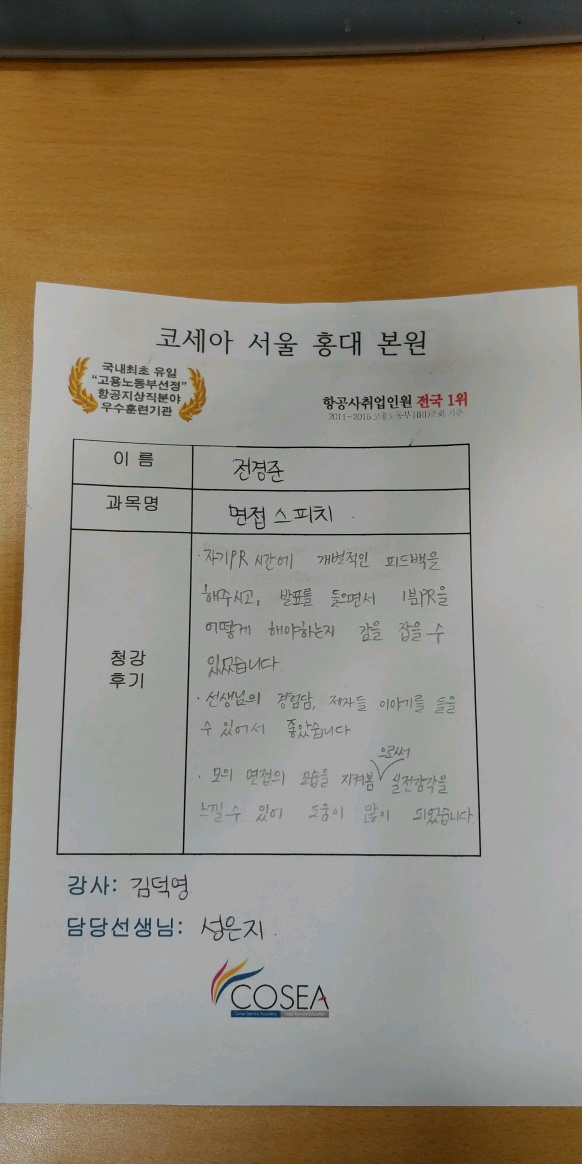 코세아 서울 홍대 본원
국내최초 유일
"고용노동부선정"
항공지상직분야
우수훈련기관
항공사취업인원 전국 1위
2011~2015 고용노동부 HRD조회 기준
이 름
전경준
과목명
면접 스피치
청강
후기
· 자기PR 시간에 개별적인 피드백을
해주시고, 발표를 들으면서 1분PR을
어떻게 해야하는지 감을 잡을 수
있었습니다.
· 선생님의 경험담, 제자들 이야기를 들을
수 있어서 좋았습니다
으로써
· 모의 면접의 모습을 지켜봄 실전감각을
느낄 수 있어 도움이 많이 되었습니다.
강사: 김덕영
담당선생님: 성은지.
COSEA